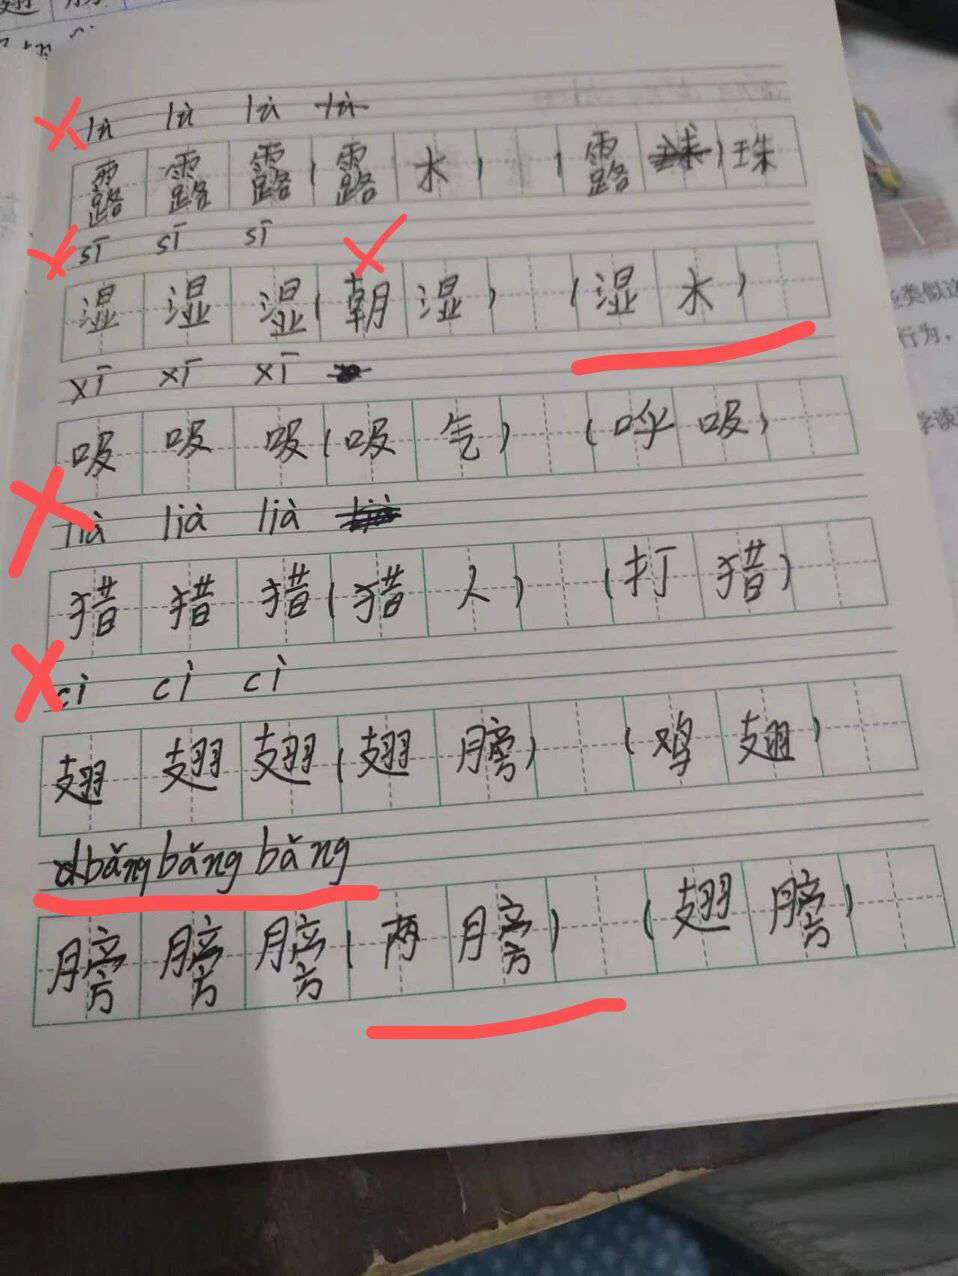 lù lù lù lù
露 露 露 ( 露 水 ) ( 露 珠 ) 珠
sī sī sī
湿 湿 湿 ( 朝 湿 ) ( 湿 水 )
xī xī xī
吸 吸 吸 ( 吸 气 ) ( 呼 吸 )
lià lià lià
猎 猎 猎 ( 猎 人 ) ( 打 猎 )
cì cì cì
翅 翅 翅 ( 翅 膀 ) ( 鸡 翅 )
bǎng bǎng bǎng
膀 膀 膀 ( 两 膀 ) ( 翅 膀 )
类似这
行为，
学读